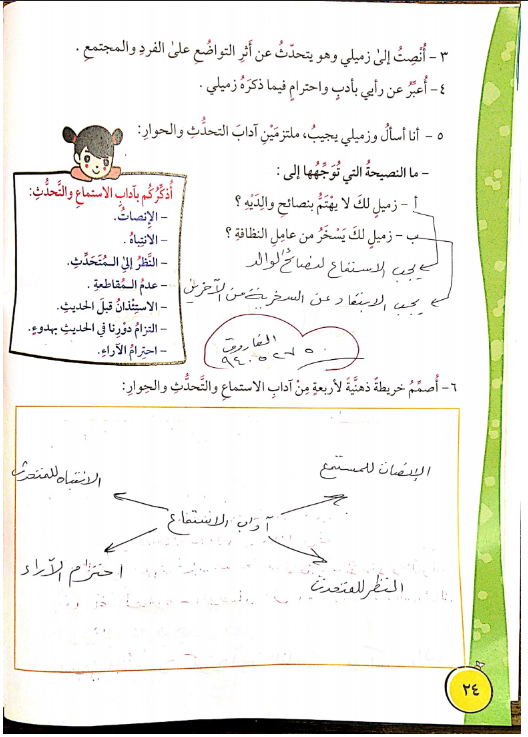 ٣ - أُنْصِتُ إلىٰ زميلي وهو يتحدّثُ عن أثرِ التواضُعِ علىٰ الفردِ والمجتمعِ .
٤ - أُعبِّرُ عن رأيي بأدبٍ واحترامٍ فيما ذكرَهُ زميلي .
٥ - أنا أسألُ وزميلي يجيبُ، ملتزمَيْنِ آدابَ التحدُّثِ والحوارِ:
- ما النصيحةُ التي تُوَجِّهُها إلى :
أ - زميلٍ لكَ لا يهْتَمُّ بنصائحِ والِدَيْهِ ؟
ب - زميلٍ لكَ يَسْخَرُ من عاملِ النظافةِ ؟
يجب الاستماع لنصائح الوالد
يجب الابتعاد عن السخرية من الآخرين
أُذكِّرُكُم بآدابِ الاستماعِ والتَّحدُّثِ:
- الإنصاتُ.
- الانتباهُ .
- النَّظرُ إلىٰ المُتَحَدِّثِ.
- عدمُ المُقاطعةِ .
- الاستِئْذانُ قبلَ الحديثِ.
- التزامُ دوْرِنا في الحديثِ بهدوءٍ.
- احترامُ الآراءِ.
الفاروق
٩٤٠٥٢٧٥٠
٦ - أُصمِّمُ خريطةً ذهنيَّةً لأربعةٍ مِنْ آدابِ الاستماعِ والتَّحدُّثِ والحِوارِ:
الإنصات للمستمع
الانتباه للمتحدث
آداب الاستماع
احترام الآراء
النظر للمتحدث
٢٤